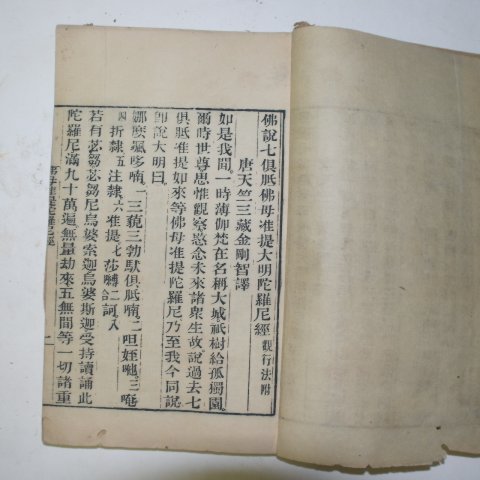 佛說七俱胝佛母准提大明陀羅尼經 觀行法附
唐天竺三藏金剛智譯
如是我聞一時薄伽梵在名稱大城祇樹給孤獨園
爾時世尊思惟觀察愍念未來諸衆生故說過去七
俱胝准提如來等佛母准提陀羅尼乃至我今同說
卽說大明曰
娜麽颯哆喃一三藐三勃馱俱胝喃二呾姪他三唵
四折隸五注隸六准提七莎嚩二訶八
若有苾芻苾芻尼烏婆索迦烏婆斯迦受持讀誦此
陀羅尼滿九十萬遍無量劫來五無間等一切諸重
一